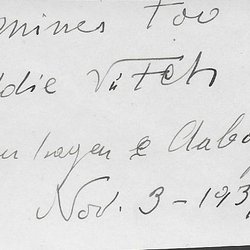 mines Too
die Vu Feh
en hagen & Aabo
Nov. 3-193